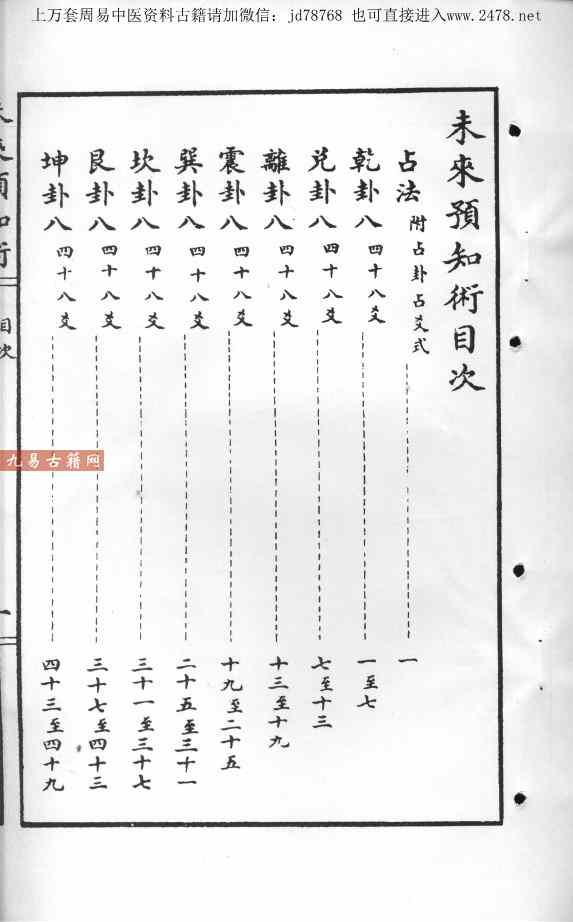 上万套周易中医资料古籍请加微信：jd78768 也可直接进入www.2478.net
未來預知術目次
占法 附占卦占爻式 一
乾卦八 四十八爻 一至七
兌卦八 四十八爻 七至十三
離卦八 四十八爻 十三至十九
震卦八 四十八爻 十九至二十五
巽卦八 四十八爻 二十五至三十一
坎卦八 四十八爻 三十一至三十七
艮卦八 四十八爻 三十七至四十三
坤卦八 四十八爻 四十三至四十九
目次
一
九易古籍网